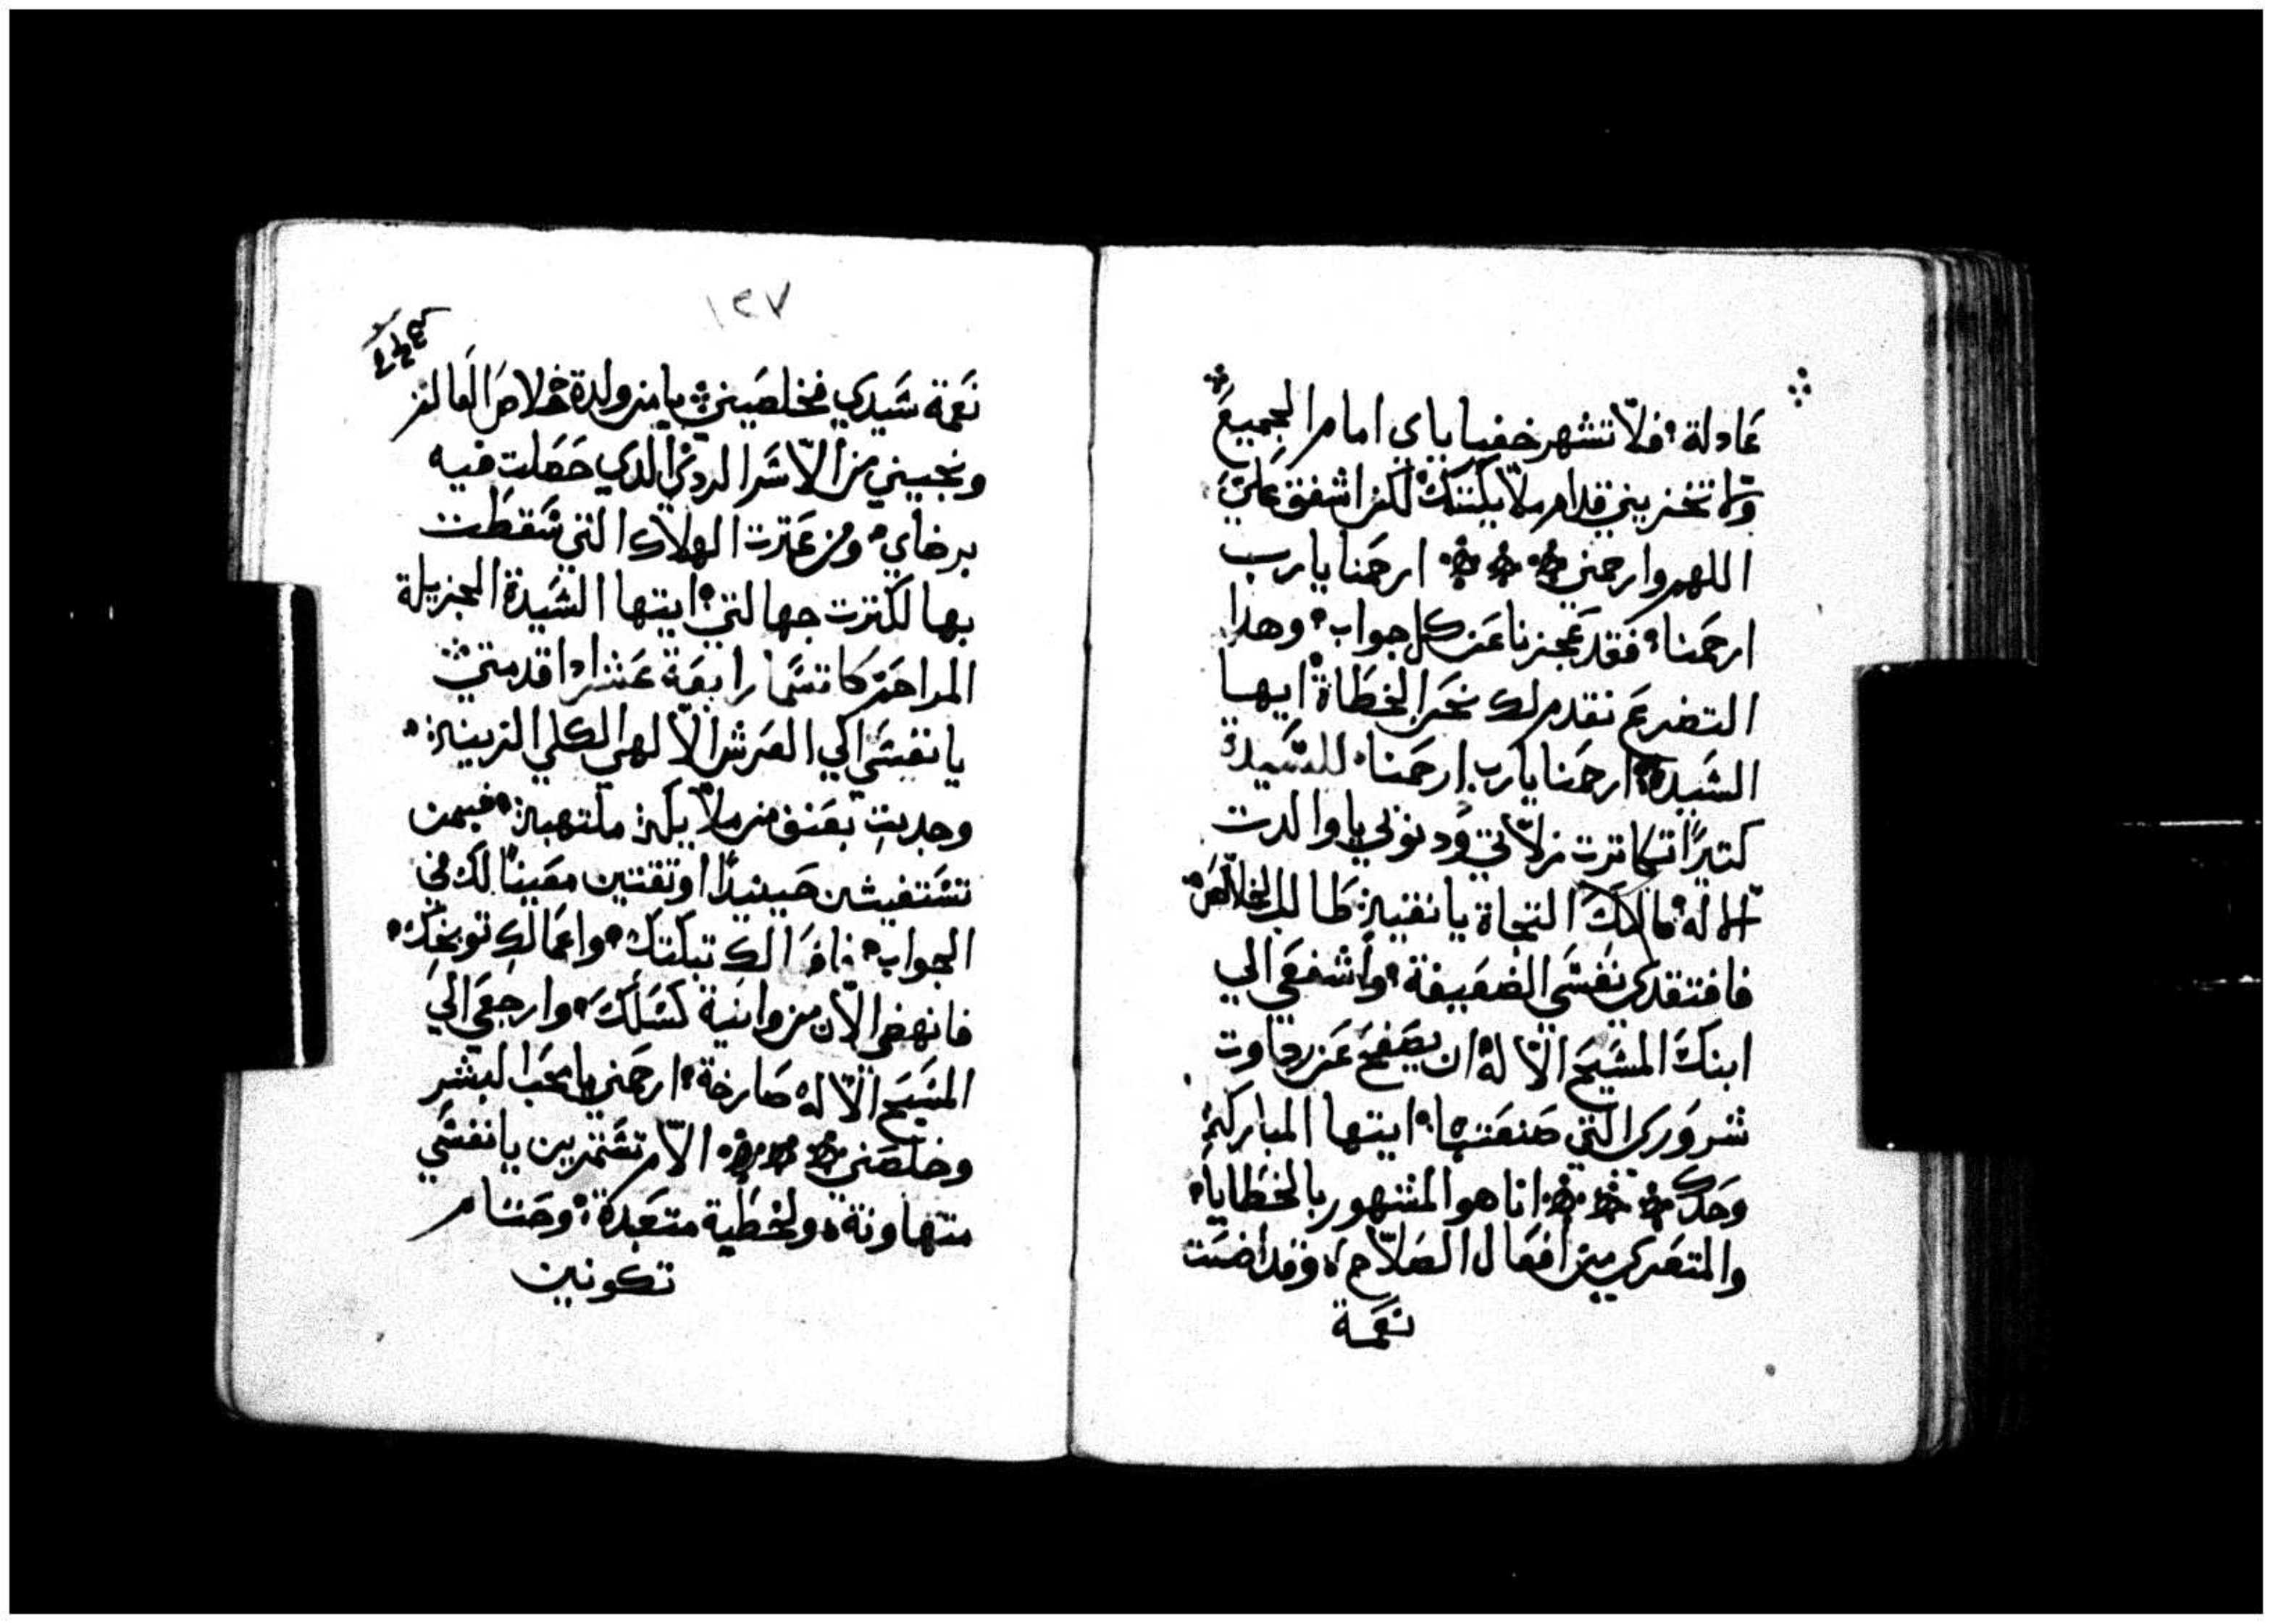 عادلة؛ فلا تشهر خفيا ياي امام الجميع
ولا تخزيني قدام ملايكتك لكن اشفق علي
اللهم وارحمني ارحمنا يارب
ارحمنا؛ فقد عجزنا عن كل جواب؛ وهدا
التضرع نقدم لك نحن الخطاة ايها
السيدة؛ ارحمنا يارب ارحمنا؛ للسيدة
كتيرًا تكاترت زلاتي ودنوبي يا والدت
الاله؛ النجاة يا نقية طالب الخلاص؛
فافتقدي نفسي الضعيفة؛ واشفعي الي
ابنك المسيح الاله ان يصفح عن رداوت
شروري التي صنعتها؛ ايتها المباركة
وحدك انا هو المشهور بالخطايا؛
والمتعري من افعال الصلاح؛ وقد اضت
نعمة
١٢٧
نعمة سيدي فخلصيني يا من ولدة خلاص العالم
ونجيني من الاسر الردي الدي حصلت فيه
برضاي؛ ومن عترت الهلاك التي سقطت
بها لكترت جهالتي؛ ايتها السيدة الجزيلة
المراحم كاتسما رابعة عشر ادا قدمتي
يا نفسي الي العرش الالهي الكلي الزينة؛
وجدبت بعنف من ملايكة ملتهبة؛ فبمن
تستغيشن حينيدًا او تقتنين معينًا لك في
الجواب؛ فافعالك تبكتك؛ واعمالك توبخك؛
فانهضي الان من وانية كسلك؛ وارجعي الي
المسيح الاله صارخة؛ ارحمني يا محب البشر
وخلصني الام تستمرين يا نفسي
متهاونة؛ ولخطية متعبدة؛ وحتام
تكونين